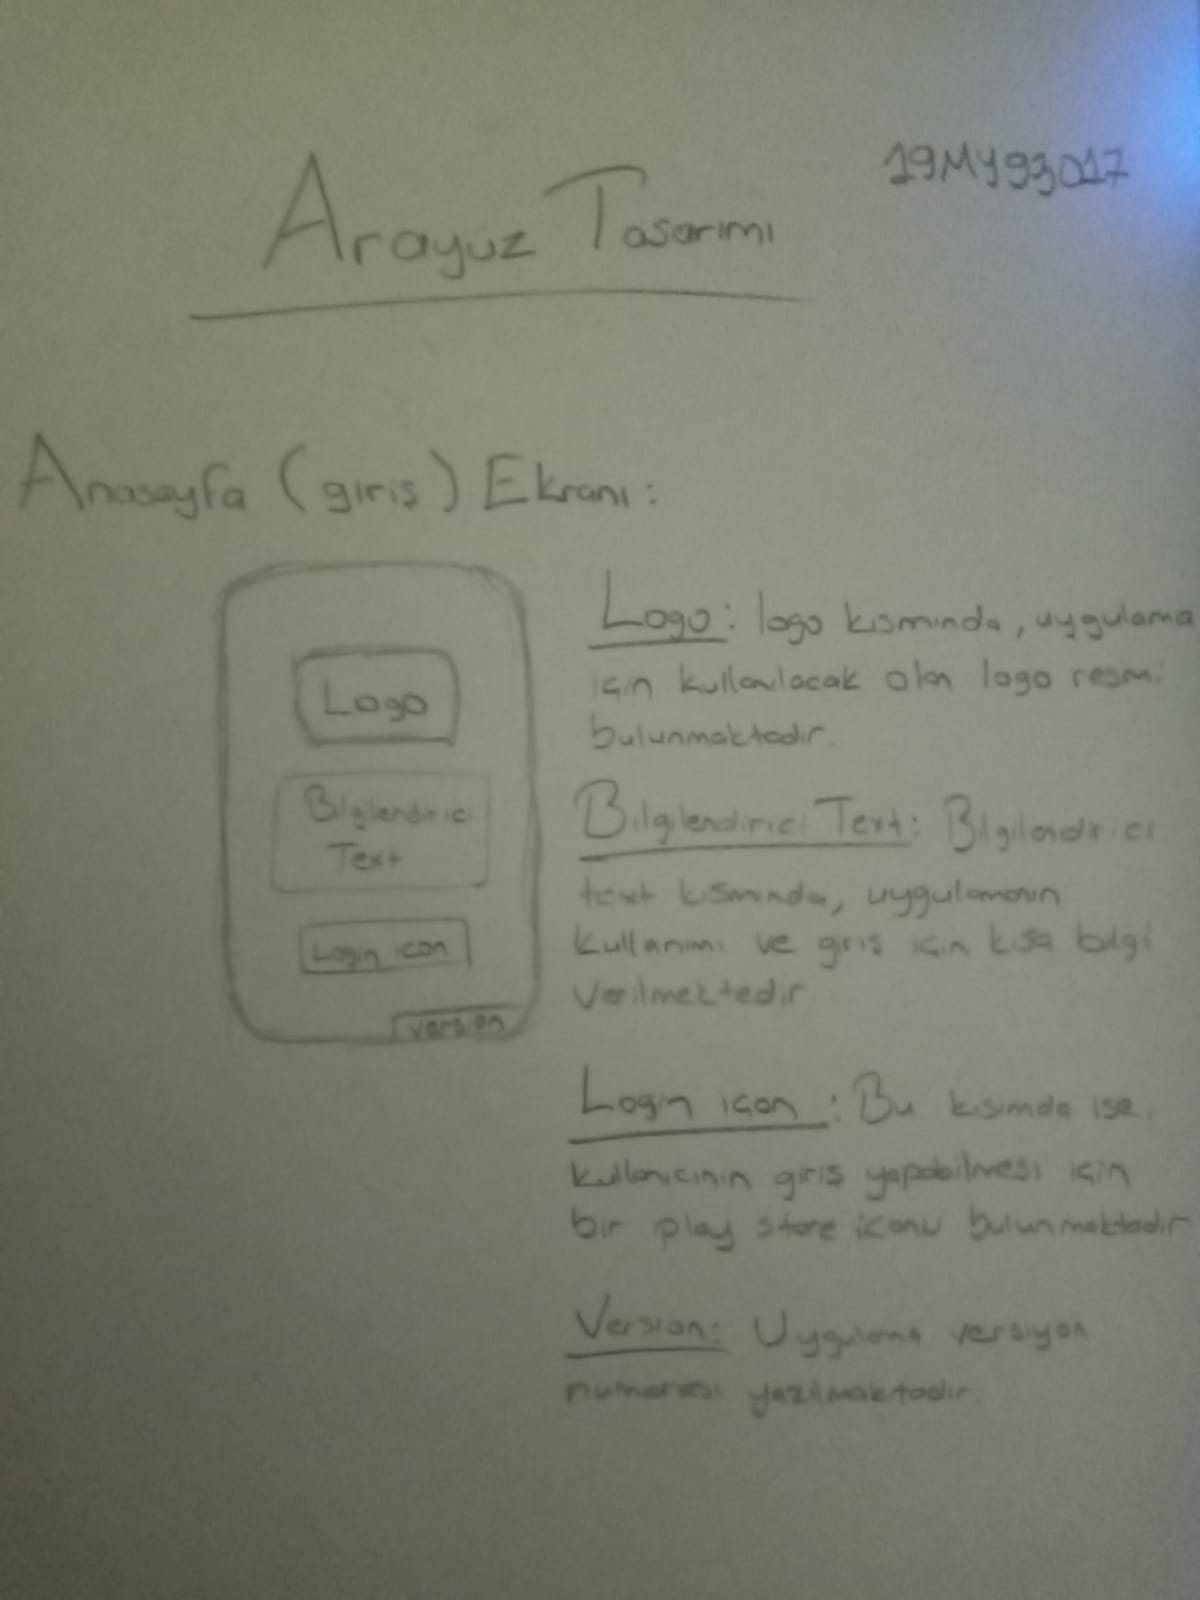 19MY93017
Arayüz Tasarımı
Anasayfa (giriş) Ekranı:
Logo
Bilgilendirici
Text
Login icon
version
Logo: logo kısmında, uygulama
için kullanılacak olan logo resmi
bulunmaktadır.
Bilgilendirici Text: Bilgilendirici
text kısmında, uygulamanın
kullanımı ve giriş için kısa bilgi
verilmektedir
Login icon: Bu kısımda ise,
kullanıcının giriş yapabilmesi için
bir play store iconu bulunmaktadır
Version: Uygulama versiyon
numarası yazılmaktadır.